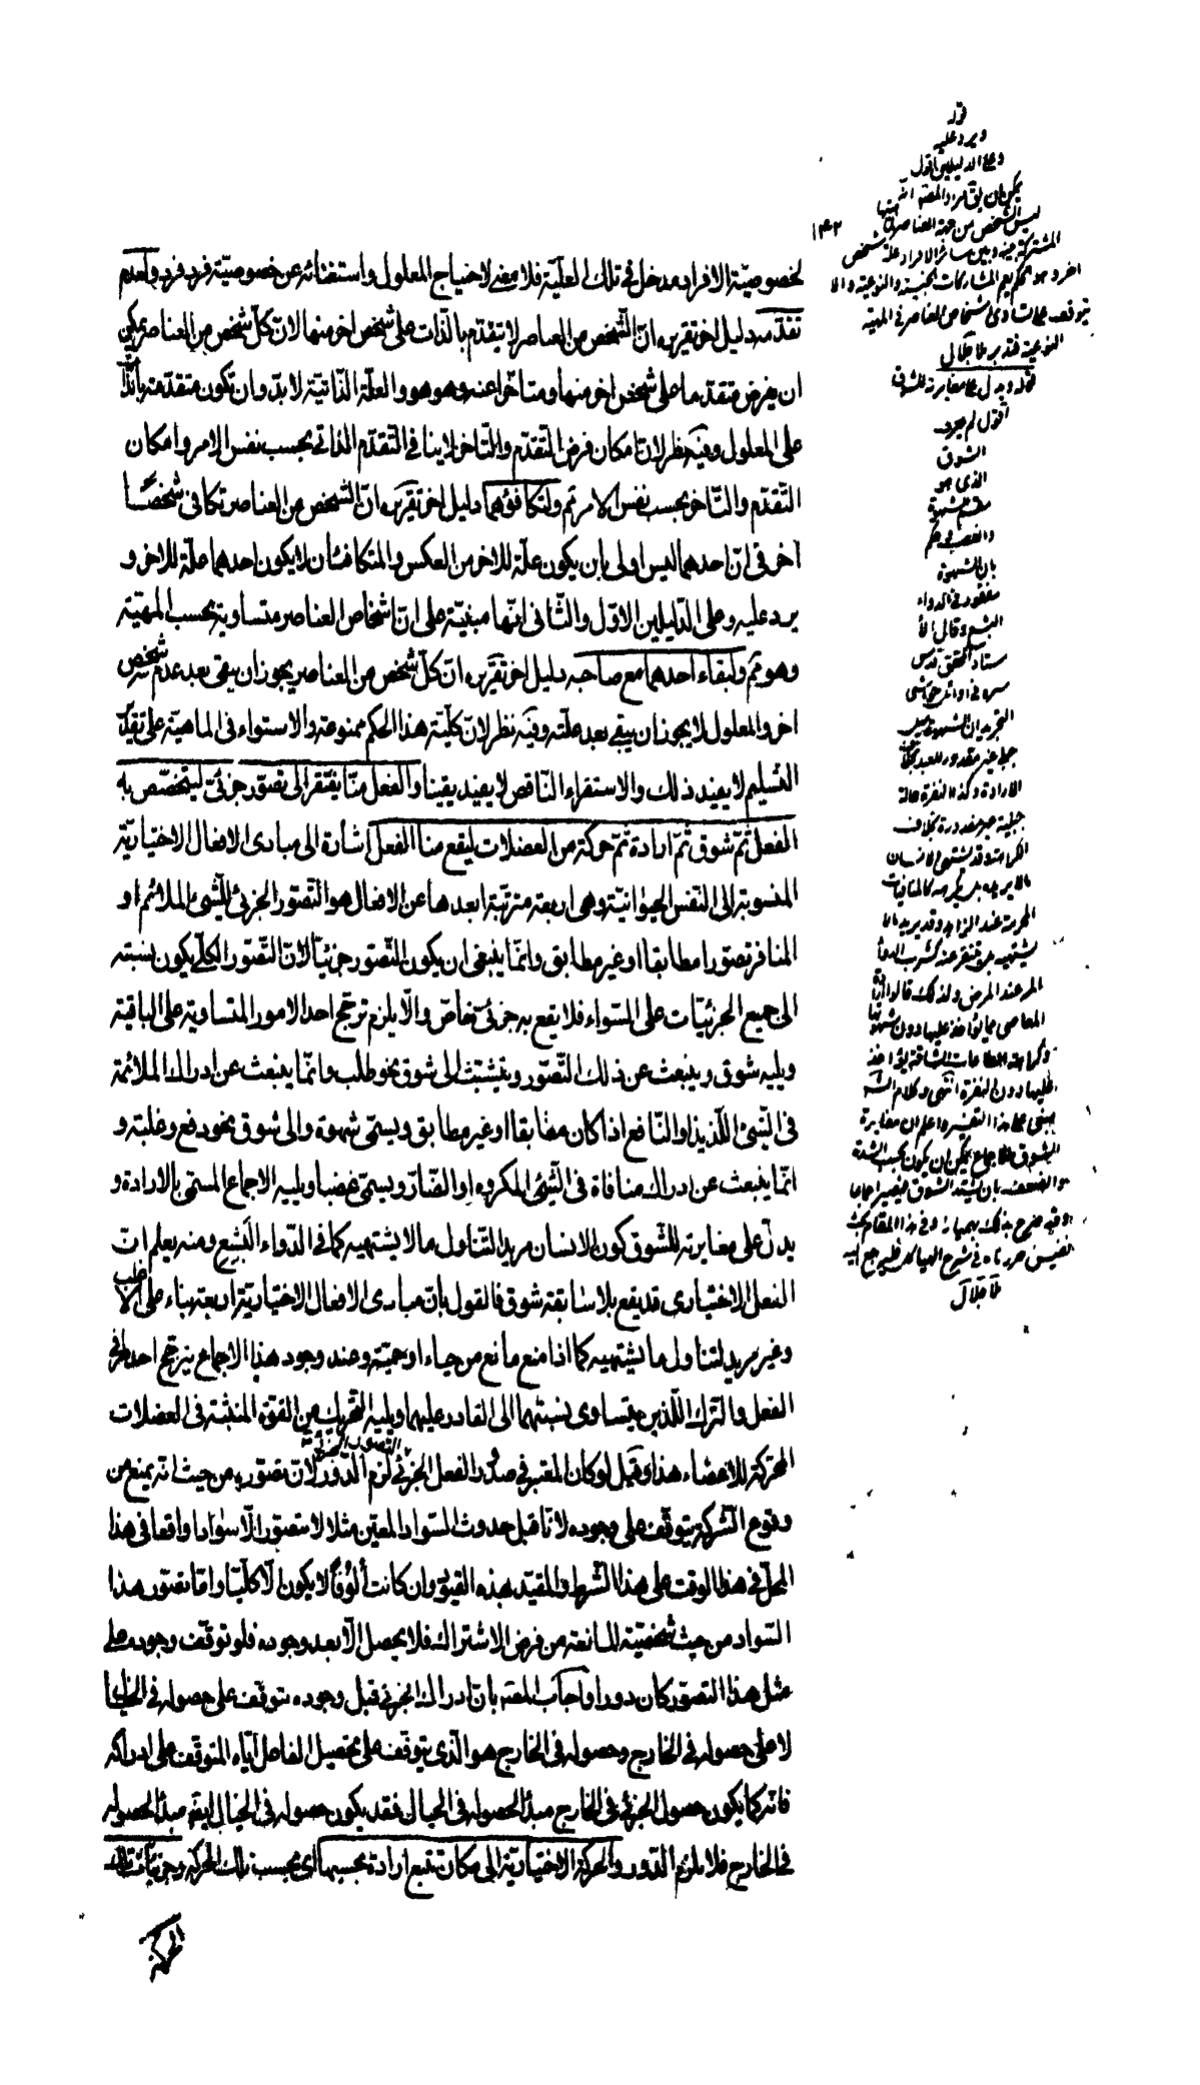 لخصوصيّة الافراد مدخل فى تلك العلّية فلا معنى لاحتياج المعلول واستغنائه عن خصوصيّة فرد فرد ولعدم
تقدّمه دليل اخر تقريره انّ الشّخص من العناصر لا يتقدّم بالذات على شخص اخر منها لانّ كلّ شخص من العناصر يمكن
ان يفرض متقدّما على شخص اخر منها ومتاخّرا عنه وهو هو والعلّة الذّاتيّة لا بدّ وان تكون متقدّمة بالذّات
على المعلول وفيه نظر لانّ امكان فرض التّقدّم والتّاخر لا ينافى التّقدّم الذاتى بحسب نفس الامر وامكان
التّقدّم والتّاخر بحسب نفس الامر ثم ولتكافؤهما دليل اخر تقريره انّ الشخص من العناصر تكافئ شخصًا
آخر فى انّ احدهما ليس اولى بان يكون علّة للاخر من العكس والمتكافئان لا يكون احدهما علّة للاخر و
يرد عليه وعلى الدّليلين الاوّل والثّانى انّها مبنيّة على انّ اشخاص العناصر متساوية بحسب المهيّة
وهو ثم ولبقاء احدهما مع صاحبه دليل اخر تقريره انّ كلّ شخص من العناصر يجوز ان يبقى بعد عدم شخص
اخر والمعلول لا يجوز ان يبقى بعد علّته وفيه نظر لانّ كليّة هذا الحكم ممنوعة والاستواء فى الماهيّة على تقدير
التسليم لا يفيد ذلك والاستقراء النّاقص لا يفيد يقينا والفعل منّا يفتقر الى تصوّر جزئىّ ليتخصّص به
الفعل ثمّ شوق ثمّ ارادة ثمّ حركة من العضلات ليقع منا الفعل اشارة الى مبادى الافعال الاختياريّة
المنسوبة الى النّفس الحيوانيّة وهى اربعة مترتّبة ابعدها عن الافعال هو التّصوّر الجزئى للشّئ الملائم او
المنافر تصوّرا مطابقا او غير مطابق وانّما ينبغى ان يكون التّصوّر جزئيّا لانّ التّصوّر الكلّى يكون نسبته
الى جميع الجزئيّات على السّواء فلا يقع به جزئىّ خاصّ والّا يلزم ترجّح احد الامور المتساوية على الباقية
ويليه شوق وينبعث عن ذلك التّصوّر ويتشبث الى شوق نحو طلب وانّما ينبعث عن ادراك الملائمة
فى الشّئ اللّذيذ او النّافع اذا كان مطابقا او غير مطابق ويسمّى شهوة والى شوق نحو دفع وغلبة و
انّما ينبعث عن ادراك منافاة فى الشّئ المكروه او الضّارّ ويسمّى غضبا ويليه الاجماع المسمّى بالارادة و
يدلّ على مغايرته للشّوق كون الانسان مريدا لتناول ما لا يشتهيه كما فى الدّواء البَشِع ومنه يعلم انّ
الفعل الاختيارى قد يقع بلا سابقة شوق فالقول بانّ مبادى الافعال الاختياريّة اربعة بناء على الاغلب
وغير مريد لتناول ما يشتهيه كما اذا منع مانع من حياء او حميّة وعند وجود هذا الاجماع يترجّح احد طرفى
الفعل والترك اللّذين يتساوى نسبتهما الى القادر عليهما ويليه التّحريك من القوّة المنبثّة فى العضلات
المحرّكة للاعضاء هذا وقيل لو كان المعتبر فى صدور الفعل الجزئى التصوّر الجزئى لزم الدّور لانّ تصوّره من حيث انّه يمنع من
وقوع الشّركة يتوقّف على وجوده لانّا قبل حدوث السّواد المعيّن مثلا لا نتصوّر الّا سوادا واقعا فى هذا
المحلّ فى هذا الوقت على هذا الشرط والمقيّد بهذه القيود وان كانت أُلوفًا لا يكون الّا كلّيّا وامّا تصوّر هذا
السّواد من حيث شخصيّته المانعة من فرض الاشتراك فلا يحصل الّا بعد وجوده فلو توقّف وجوده على
مثل هذا التصوّر كان دورا واجاب المص بانّ ادراك الجزئى قبل وجوده يتوقّف على حصوله فى الخيال
لا على حصوله فى الخارج وحصوله فى الخارج هو الّذى يتوقّف على تحصيل الفاعل ايّاه المتوقّف على ادراكه
فانّه كما يكون حصول الجزئى فى الخارج مبدأ لحصوله فى الخيال فقد يكون حصوله فى الخيال ايضا مبدأ لحصوله
فى الخارج فلا يلزم الدّور والحركة الاختياريّة الى مكان تتبع ارادة بحسبها اى بحسب تلك الحركة وجزئيّات تلك
الحركة
١٤٢
قوله
ويرد عليه
وعلى الدليلين اقول
يمكن ان يقال مراد المصنف انه
ليس الشخص من جهة العناصر
المشتركة بينه وبين سائر الافراد علة شخص
اخر وهو حكم يعم المشاركات الجنسية والنوعية ولا
يتوقف على تساوى اشخاص العناصر فى المهية
النوعية فتدبر ملا جلال
قوله ويدل على مغايرته للشوق
اقول لم يعرف
الشوق
الذى هو
شهوة
والغضب حكم
بان الشهوة
مفقود فى الدواء
البشع وقال
المحقق قدس
سره فى اواخر حواشى
التجريد ان الشهوة ميل
جبلى غير مقدور للعبد بخلاف
الارادة وكذا النفرة حالة
جبلية غير مقدورة بخلاف
الكراهة وقد يشتهى الانسان
ما لا يريده بل يكرهه كالمنافيات
المحرمة عند الزاهد وقد يريد ما لا
يشتهيه بل ينفر عنه كشرب الدواء
المر عند المرض ولذلك قالوا ارادة
المعاصى مما يؤاخذ عليها دون شهوتها
وكراهة الطاعات الشاقة يؤاخذ
عليها دون النفرة انتهى وكلام الشارح
مبنى على هذا التفسير واعلم ان مغايرة
الشوق للاجماع يمكن ان يكون بحسب الشدة
والضعف بان يشتد الشوق فيصير اجماعا
وقد صرح بذلك بهمنيار وفى هذا المقام بحث
نفيس حررناه فى شرح الهياكل فليرجع اليه
ملا جلال